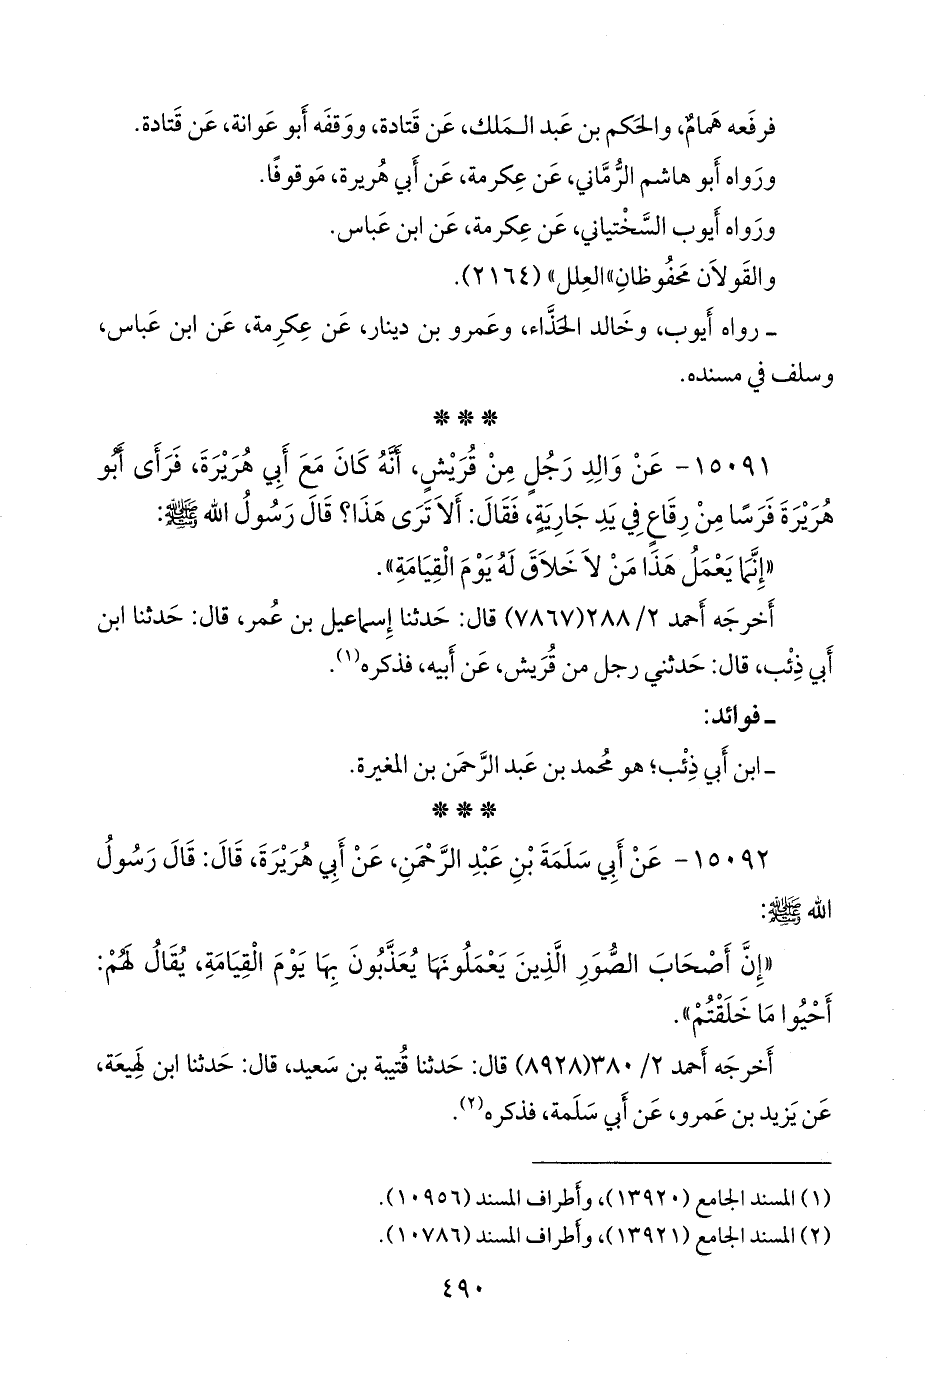 فرفَعه هَمامٌ، والحَكم بن عَبد الـمَلك، عَن قَتادة، ووَقفَه أَبو عَوانة، عَن قَتادة.
ورَواه أَبو هاشم الرُّمَّاني، عَن عِكرمة، عَن أَبي هُريرة، مَوقوفًا.
ورَواه أَيوب السَّخْتياني، عَن عِكرمة، عَن ابن عَباس.
والقَولاَن مَحفُوظانِ»العِلل» (٢١٦٤).
ـ رواه أَيوب، وخَالد الحَذَّاء، وعَمرو بن دينار، عَن عِكرِمة، عَن ابن عَباس،
وسلف في مسنده.
* * *
١٥٠٩١- عَنْ وَالِدِ رَجُلٍ مِنْ قُرَيْشٍ، أَنَّهُ كَانَ مَعَ أَبِي هُرَيْرَةَ، فَرَأَى أَبُو
هُرَيْرَةَ فَرَسًا مِنْ رِقَاعٍ فِي يَدِ جَارِيَةٍ، فَقَالَ: أَلاَ تَرَى هَذَا؟ قَالَ رَسُولُ الله ﷺ:
«إِنَّمَا يَعْمَلُ هَذَا مَنْ لاَ خَلاَقَ لَهُ يَوْمَ الْقِيَامَةِ».
أَخرجَه أَحمد ٢/ ٢٨٨(٧٨٦٧) قال: حَدثنا إِسماعيل بن عُمر، قال: حَدثنا ابن
أَبي ذِئْب، قال: حَدثني رجل من قُريش، عَن أَبيه، فذكره(١).
ـ فوائد:
ـ ابن أَبي ذِئْب؛ هو مُحمد بن عَبد الرَّحمَن بن المغيرة.
* * *
١٥٠٩٢- عَنْ أَبِي سَلَمَةَ بْنِ عَبْدِ الرَّحْمَنِ، عَنْ أَبِي هُرَيْرَةَ، قَالَ: قَالَ رَسُولُ
الله ﷺ:
«إِنَّ أَصْحَابَ الصُّوَرِ الَّذِينَ يَعْمَلُونَهَا يُعَذَّبُونَ بِهَا يَوْمَ الْقِيَامَةِ، يُقَالُ لَهُمْ:
أَحْيُوا مَا خَلَقْتُمْ».
أَخرجَه أَحمد ٢/ ٣٨٠(٨٩٢٨) قال: حَدثنا قُتيبة بن سَعيد، قال: حَدثنا ابن لَهِيعَة،
عَن يَزيد بن عَمرو، عَن أَبي سَلَمة، فذكره(٢).
(١) المسند الجامع (١٣٩٢٠)، وأَطراف المسند (١٠٩٥٦).
(٢) المسند الجامع (١٣٩٢١)، وأَطراف المسند (١٠٧٨٦).
٤٩٠